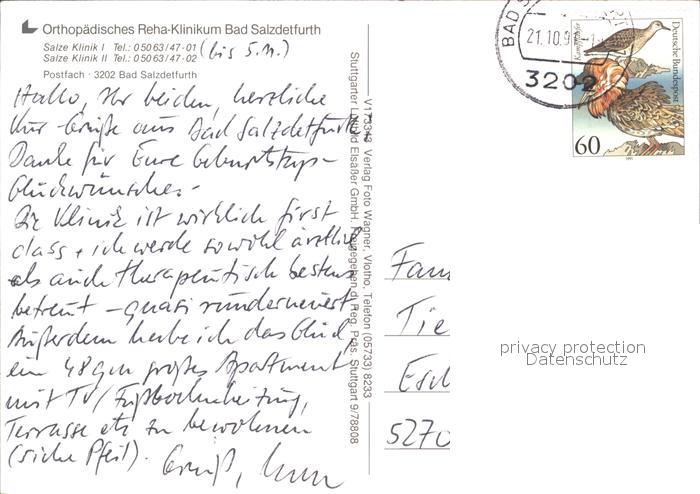 Orthopädisches Reha-Klinikum Bad Salzdetfurth
Salze Klinik I Tel.: 05063/47-01 (bis 5.11.)
Salze Klinik II Tel.: 05063/47-02
Postfach · 3202 Bad Salzdetfurth
Hallo, Ihr beiden, herzliche
Kur-Grüße aus Bad Salzdetfurth.
Danke für Eure Geburtstags-
Glückwünsche.-
Die Klinik ist wirklich first
class + ich werde sowohl ärztlich
als auch therapeutisch bestens
betreut - quasi runderneuert.
Außerdem habe ich das Glück,
ein 48 qm großes Apartment
mit TV/Fußbodenheizung,
Terrasse etc zu bewohnen
(siehe Pfeil). Gruß,
V173343 Verlag Foto Wagner, Vlotho, Telefon (05733) 8233
Stuttgarter Luftbild Elsäßer GmbH. Freigegeben d. Reg. Präs. Stuttgart 9/78808
BAD S
21.10.9
3202
Kampfläufer
Deutsche Bundespost
60
1991
Fam
Tie
Esch
5270
privacy protection
Datenschutz